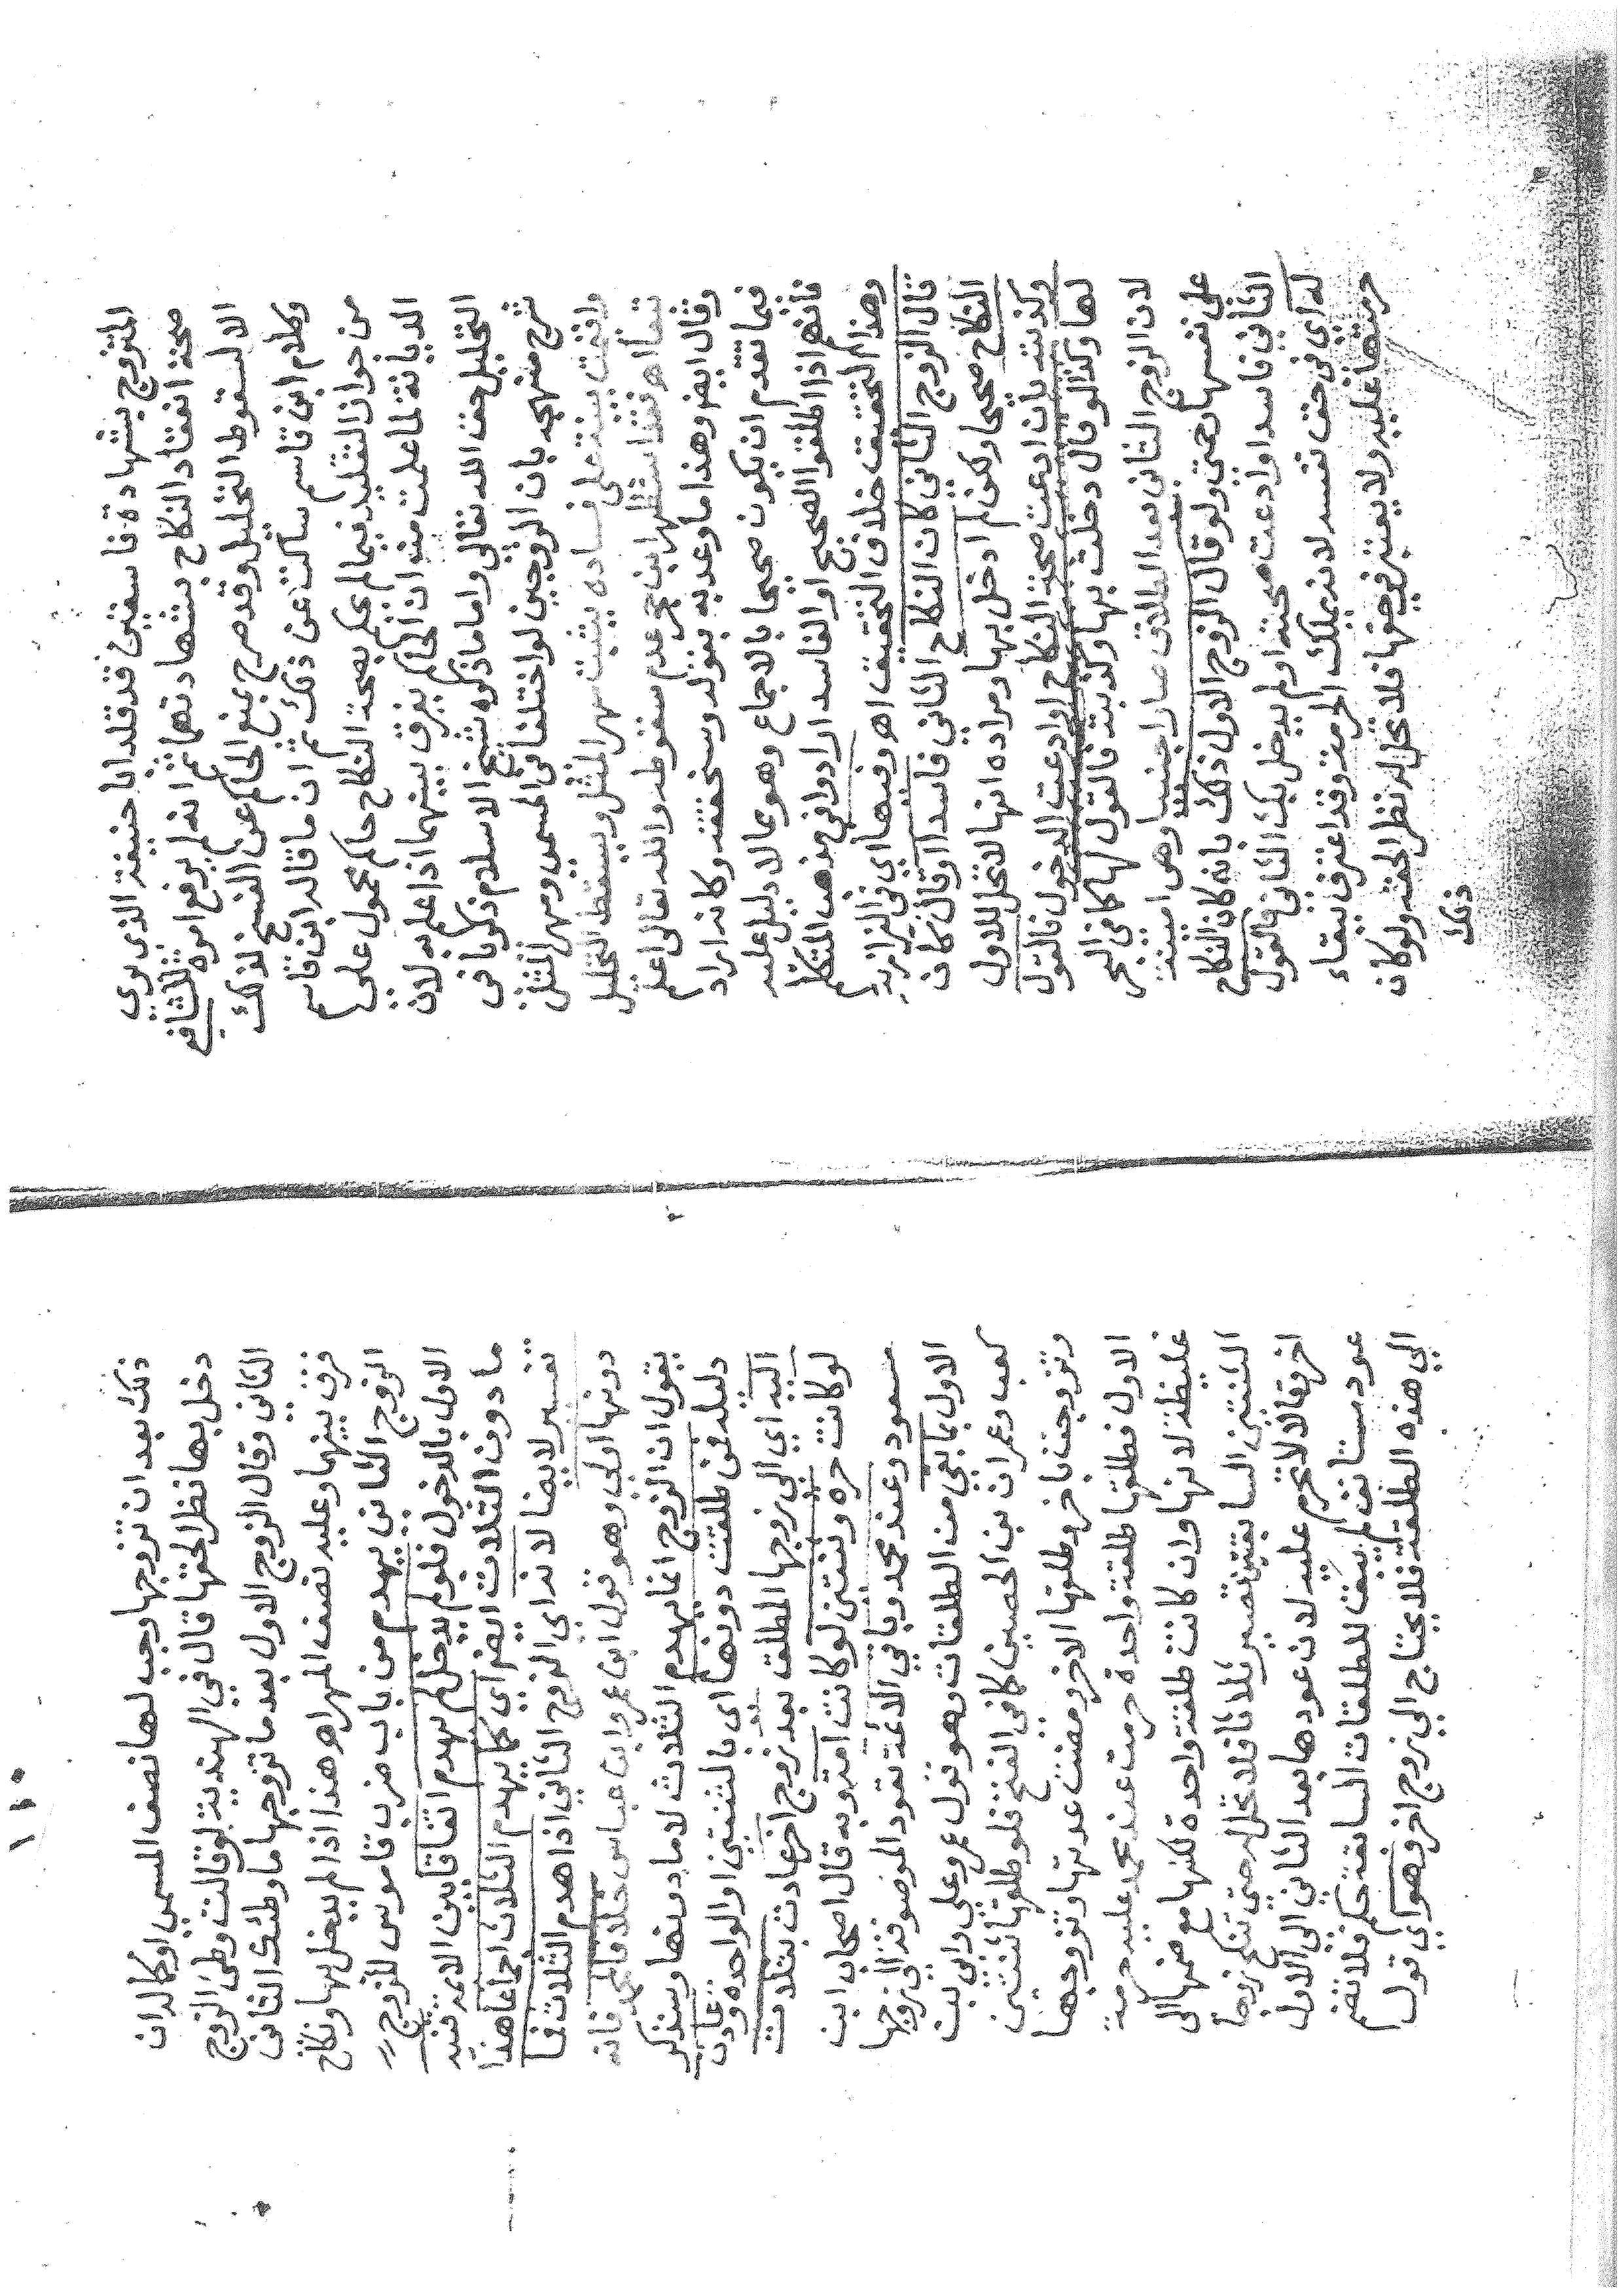 المتزوج بشهادة فاسقين قد قلد ابا حنيفة الذي يري
صحة انعقاد النكاح بشهادتهما ثم انه لم يرفع امره للشافعي
الا لسقوط التحليل وقد صرح بمنع الحاكم عن الفسخ لذلك
وكلام ابن قاسم ساكت عن ذلك ثم ان ما قاله ابن قاسم
من جواز التقليد فيما لم يحكم بصحة النكاح حاكم محمول علي
الديانة لما علمت من ان الحاكم يفرق بينهما اذا علم به لان
التحليل حق الله تعالي واما ما ذكره شيخ الاسلام زكريا في
شرح منهجه بان الزوجين لو اختلفا في المسمي ومهر المثل
واقيمت بينة علي فساده يثبت مهر المثل ويسقط التحليل
تبعا اه فقد استظهر ابن حجر عدم سقوطه والله تعالي اعلم
وقال ايضر وهذا ما وعد به بقوله وسنحققه وكانه اراد
فيما تقدم ان يكون صحيحا بالاجماع وهو مما لا دليل عليه
فانهم اذا اطلقوا الصحيح او الفاسد ارادوا في مذهب المتكلم
وهذا التحقيق خلاف التحقيق اه وفيها اي في البزازية
قال الزوج الثاني كان النكاح الثاني فاسدا او قال كان
النكاح صحيحا ولكن لم ادخل بها ومراده انها لا تحل للاول
وكذبته بان ادعت صحة النكاح او ادعت الدخول فالقول
لها وكذا لو قال دخلت بها وكذبته فالقول لها كما في البحر
لان الزوج الثاني بعد الطلاق صار اجنبيا وهي امينة
علي نفسها حتي ولو قال الزوج الاول ذلك بانه كان النكاح
الثاني فاسدا وادعت صحته او لم يدخل بك الثاني فالقول
له اي في حق نفسه لانه يملك الحرمة وقد اعترف ببقاء
حرمتها عليه ولا يعتبر في حقها فلا تحل له نظرا لحقه ولو كان
ذلك
١١٠
ذلك بعد ان تزوجها وجب لها نصف المسمي او كله ان
دخل بها نظرا لحقها قال في الهندية لو قالت وطئ الزوج
الثاني وقال الزوج الاول بعد ما تزوجها ما وطئك الثاني
فرق بينهما وعليه نصف المهر اه هذا اذا لم يدخل بها ونكاح
الزوج الثاني يهدم من باب ضرب قاموس للزوج
الاول بالدخول فلو لم يدخل لم يهدم اتفاقا بين الايمة قنيه
ما دون الثلاث ايضر اي كما يهدم الثلاث اجماعا هذا
تفسير لايضا لانه اي الزوج الثاني اذا هدم الثلاث فما
دونها اولي وهو قول ابن عمر وابن عباس خلافا لمحمد فانه
يقول ان الزوج انما يهدم الثلاث لا ما دونها وسنذكر
دليله فمن طلقت دونها اي بالثنتين او الواحدة وعادت
اليه اي الي زوجها المطلق بعد زوج اخر عادت بثلاث
لو كانت حره وثنتين لو كانت امة وبه قال اصحاب ابن
مسعود وعند محمد وباقي الائمة تعود المرضوفة الي زوجها
الاول بما بقي من الطلقات وهو قول عمر وعلي وابي بن
كعب وعمران بن الحصين كما في الفتح فلو طلقها ثنتين
وتزوجت باخر وطلقها الاخر ومضت عدتها وتزوجها
الاول فطلقها طلقة واحدة حرمت عند محمد عليه حرمة
غليظة لانها وان كانت طلقة واحدة لكنها مع ضمها الي
الثنتين السابقتين تصير ثلاثا فلا تحل له حتي تنكح زوجا
اخر وقالا لا تحرم عليه لان عودها بعد الثاني الي الاول
عود مستانف لم يبق للطلقات السابقة حكم فلا تنضم
الي هذه الطلقة فلا يحتاج الي زوج اخر وهو اي قول